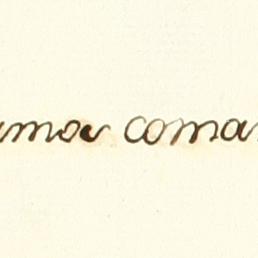 amor coman